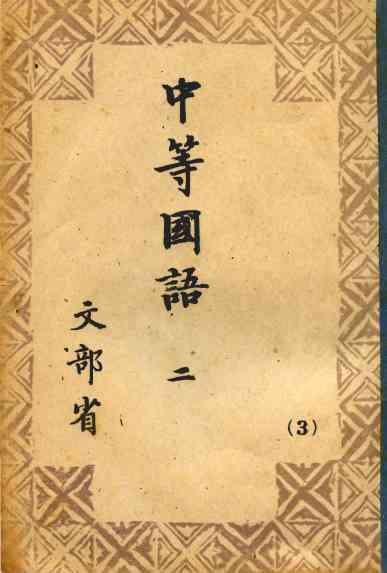 中等國語 二
(3)
文部省